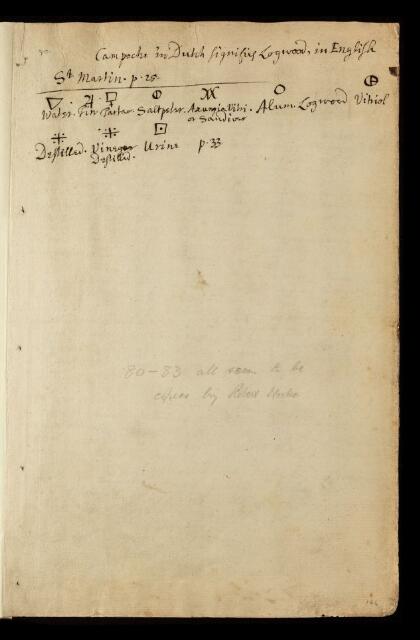 Campeche in Dutch signifies Logwood, in English
St Martin. p. 25.
Water. Tin. Tartar. Saltpeter. Axungia Vitri. Alum. Logwood Vitriol
or Sandiver
Destilled. Vinegar Urine p. 33.
Destilled.
80-83 all seem to be
by Robert Hooke